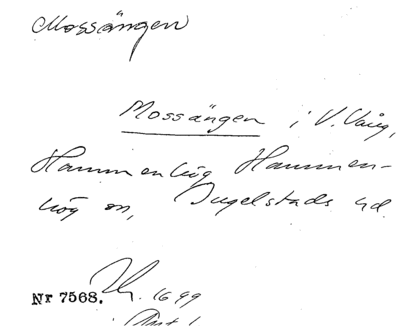 Mossängen
Mossängen i V. Vång,
Hammenhög Hammen-
hög sn, Ingelstads hd.
Nr 7568. 1699